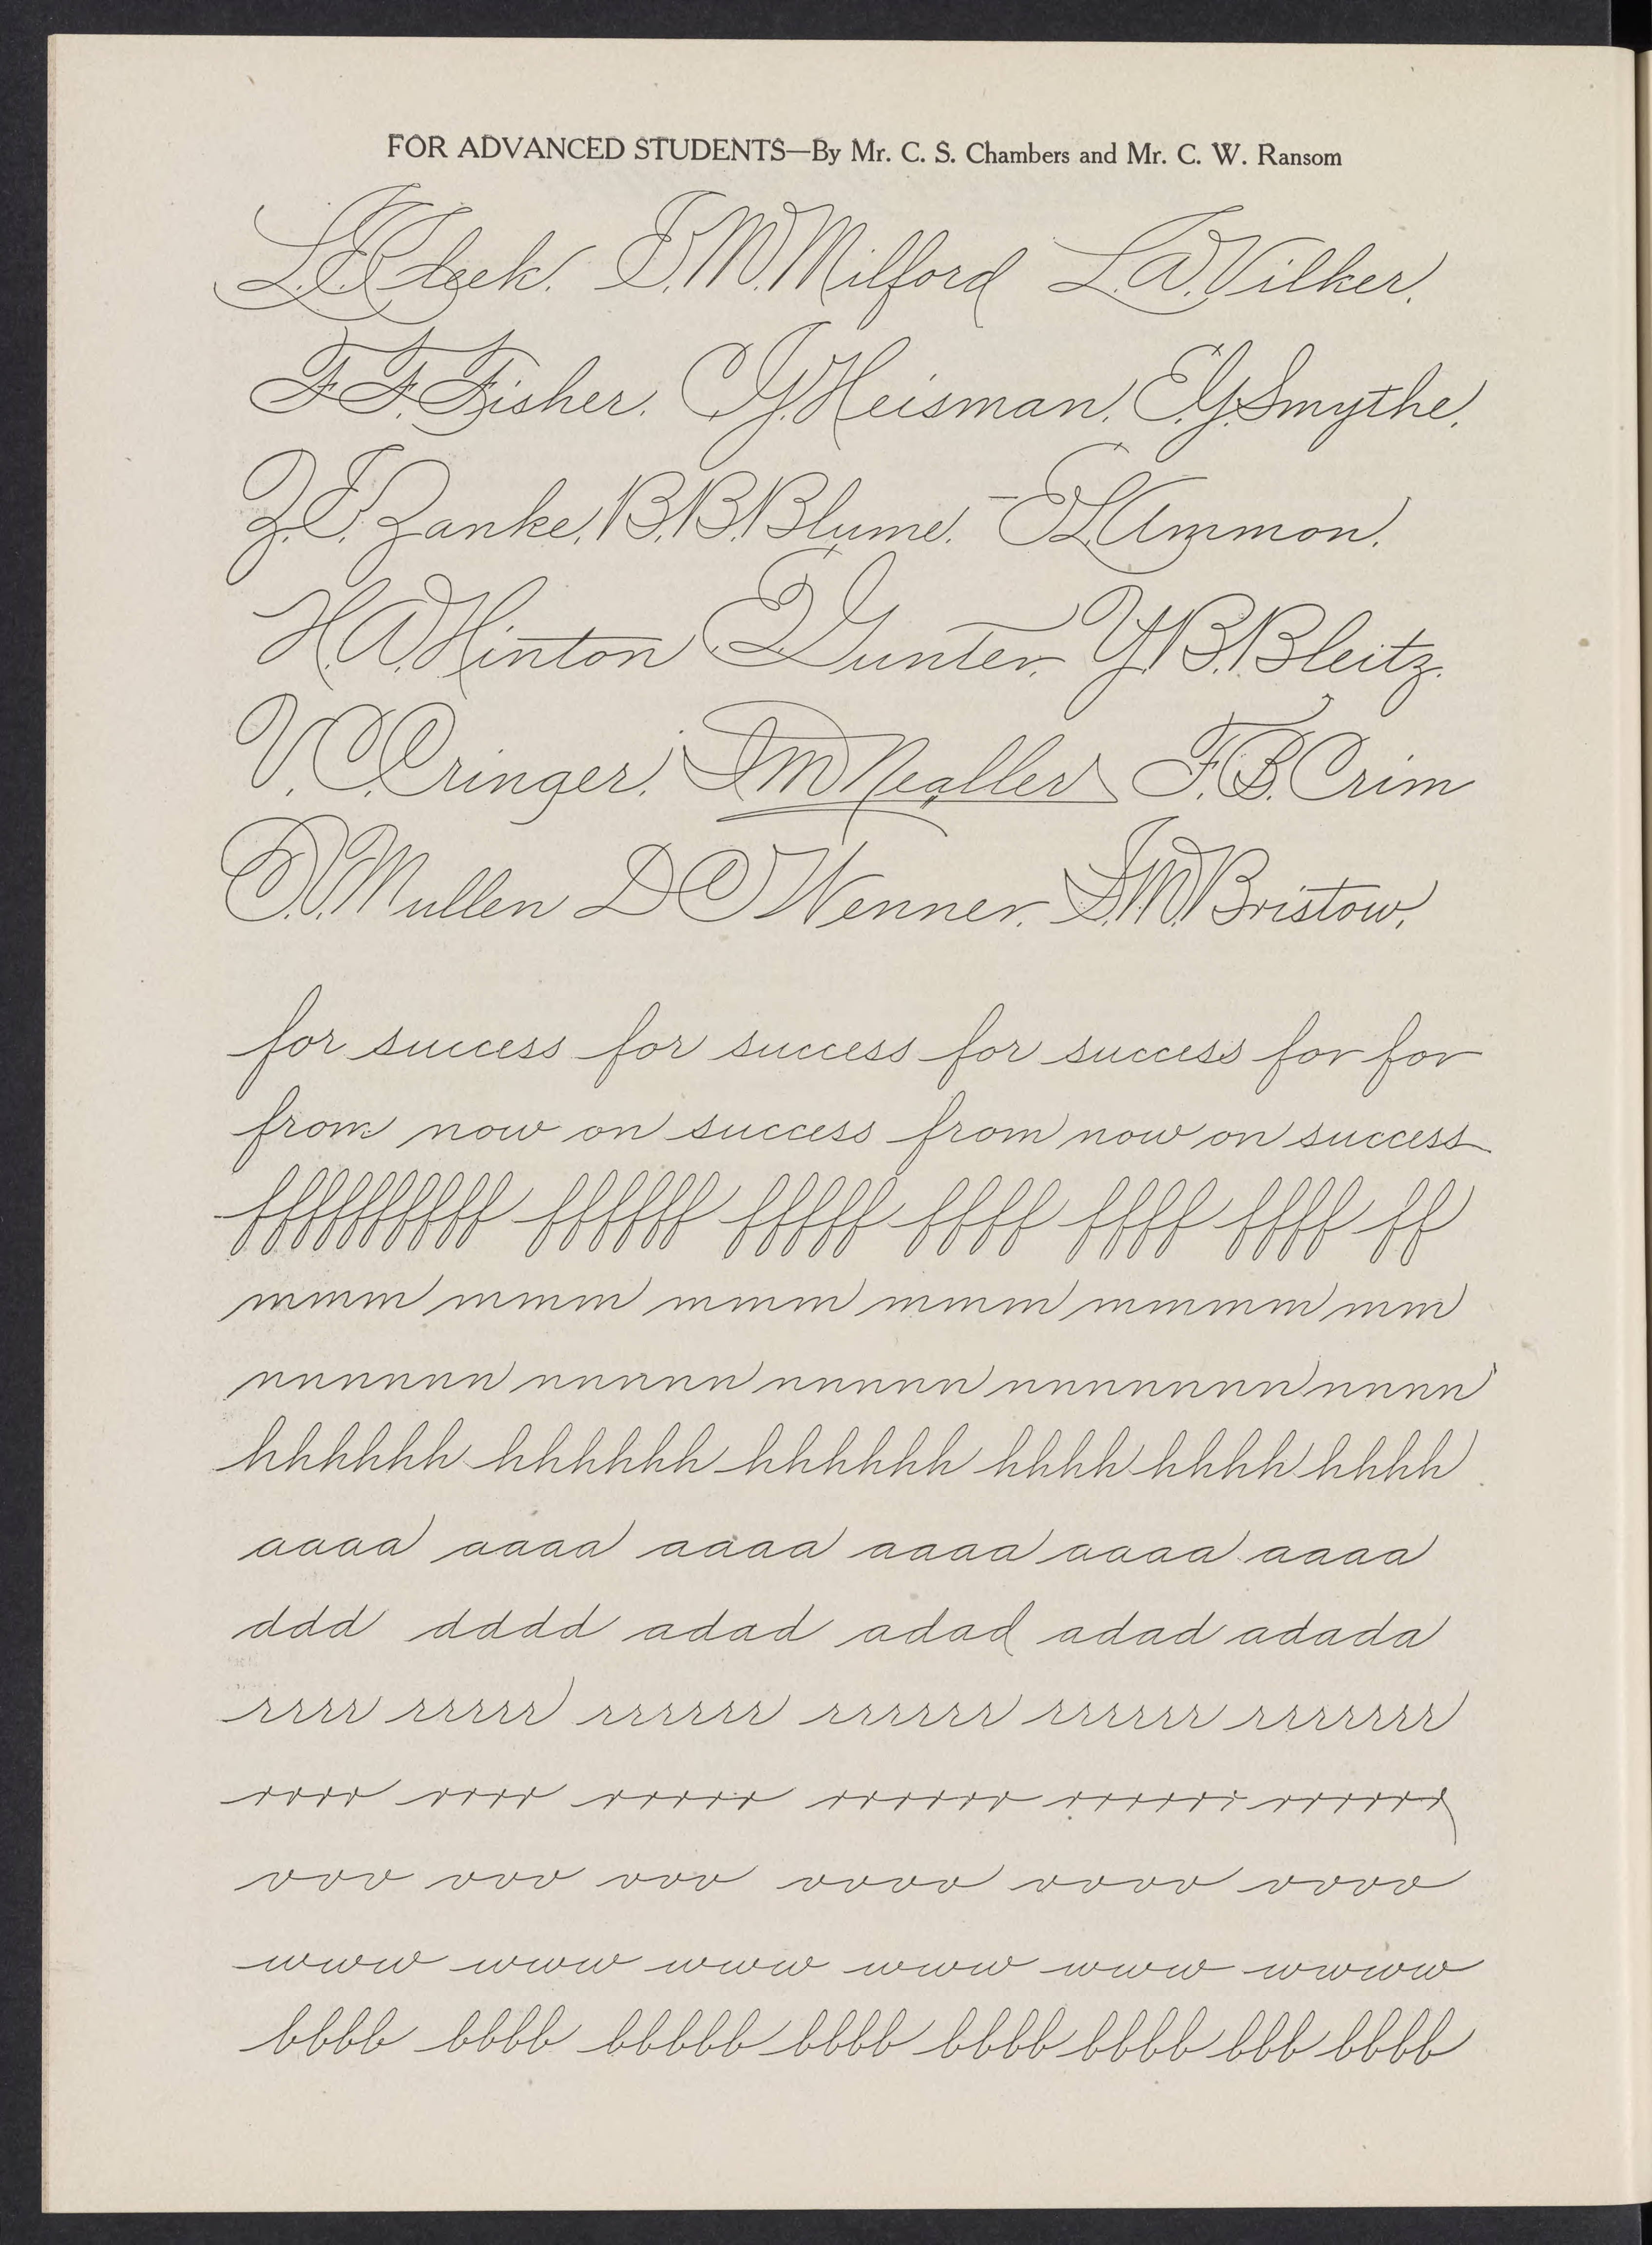 FOR ADVANCED STUDENTS—By Mr. C. S. Chambers and Mr. C. W. Ransom
T. M. Milford L. W. Vilker.
F. F. Fisher. C. G. Heisman. E. G. Smythe.
Z. T. Zanke. B. B. Blume. E. L. Ammon.
H. W. Hinton Gunter. Y. B. Bleitz.
V. C. Cringer. F. B. Crim
Mullen D C Wenner. S. M. Bristow.
for success for success for success for for
from now on success from now on success
ffffffffff ffffff fffff ffff ffff ffff ff
mmmm mmmm mmmm mmmm mmmmm mmm
nnnnnn nnnnn nnnnn nnnnnnn nnnn
hhhhhh hhhhhh hhhhhh hhhh hhhh hhhh
aaaa aaaa aaaa aaaa aaaa aaaa
ddd dddd adad adad adad adada
rrrr rrrrr rrrrrr rrrrrr rrrrrr rrrrrrr
rrrr rrrr rrrrr rrrrrr rrrrrr rrrrrr
vvv vvv vvv vvvv vvvv vvvv
www www www www www wwww
bbbb bbbb bbbbb bbbb bbbb bbbb bbb bbbb